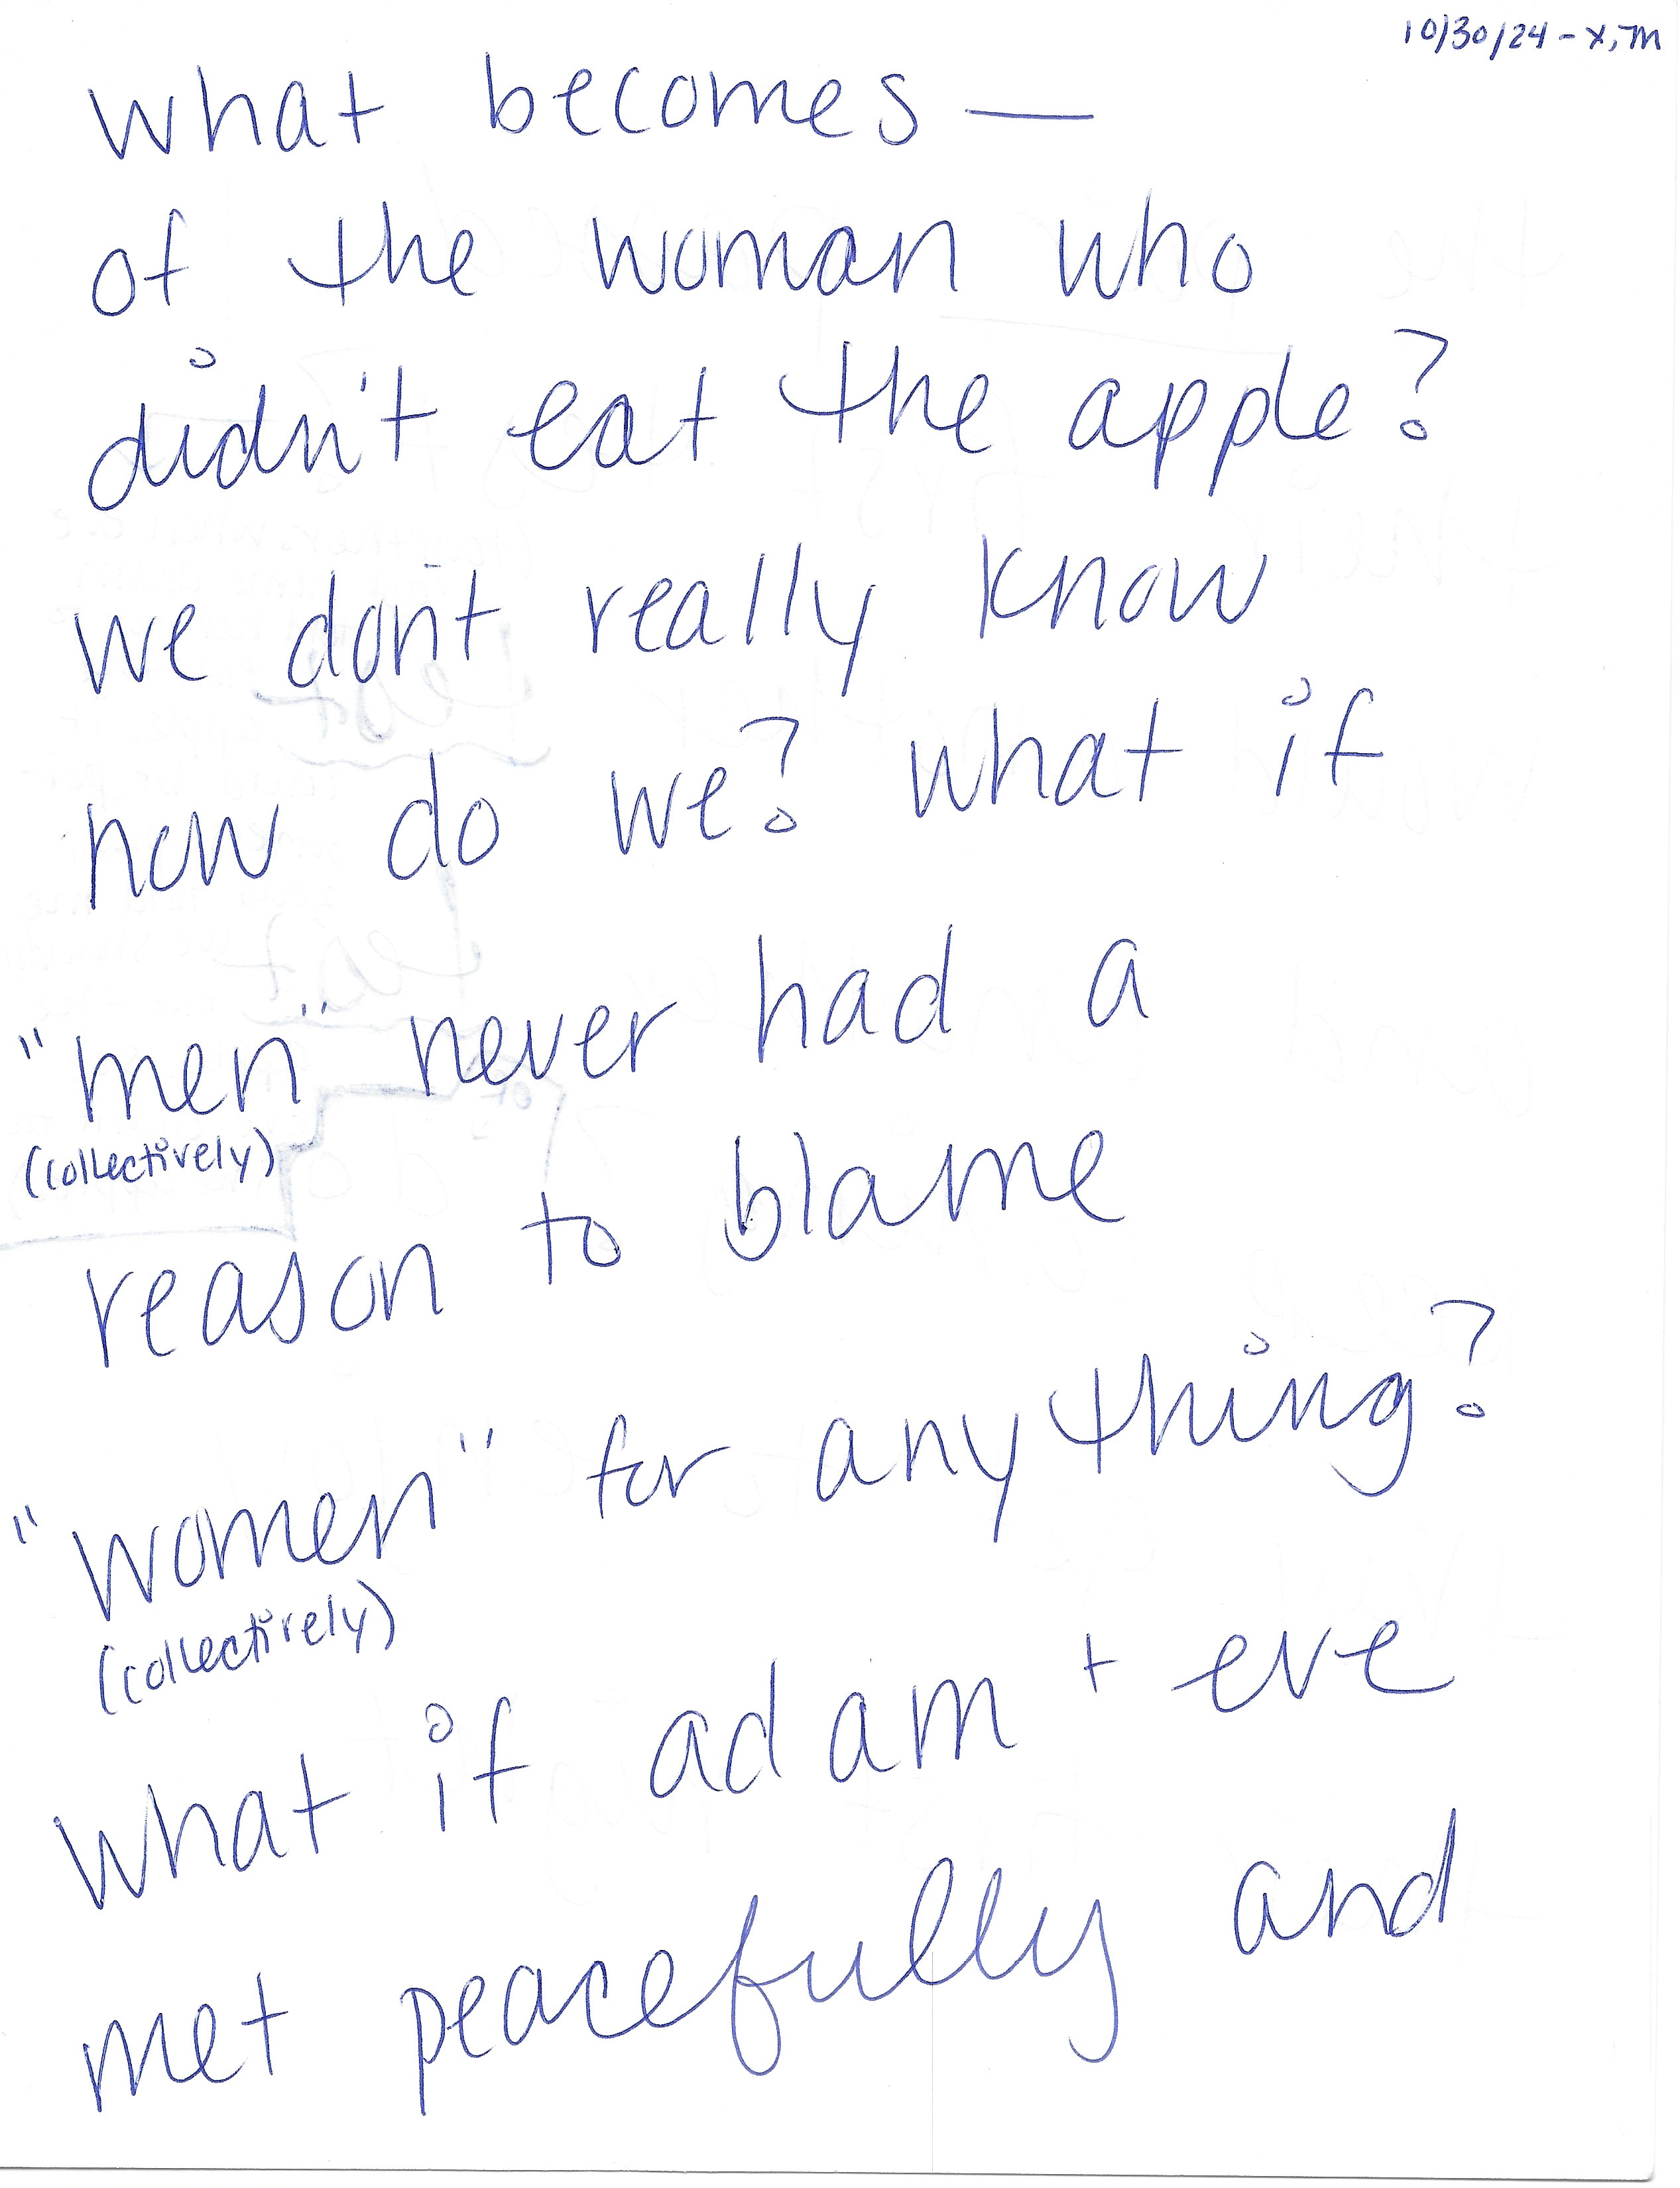 10/30/24 - x, m
what becomes —
of the woman who
didn't eat the apple?
we don't really know
how do we? what if
"men" never had a
(collectively)
reason to blame
"women" for anything?
(collectively)
what if adam + eve
met peacefully and